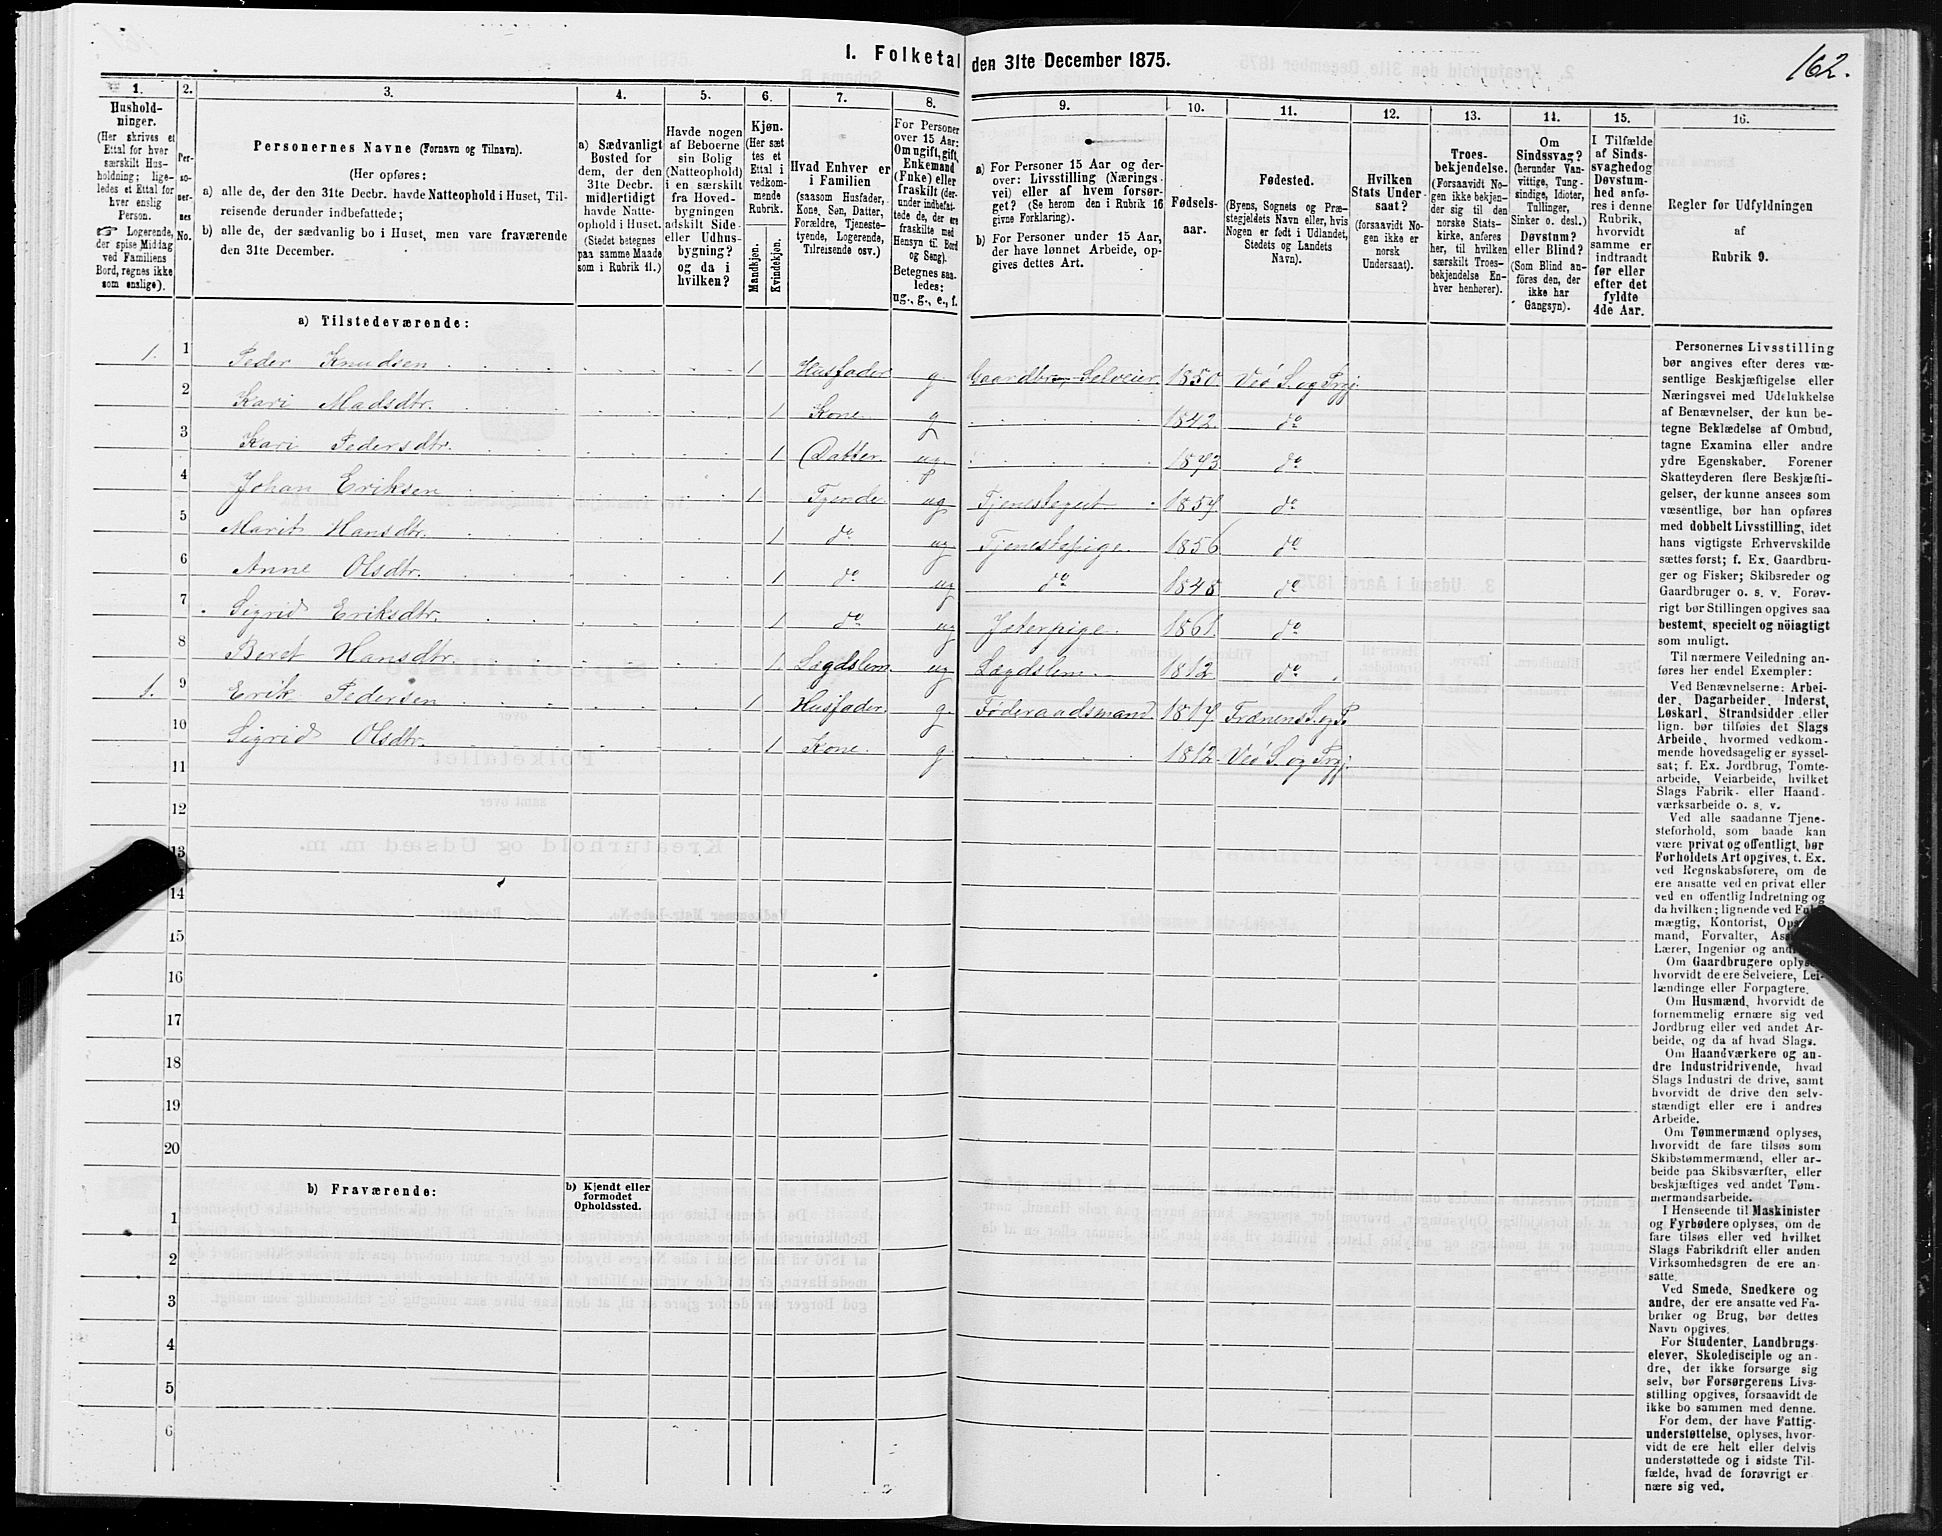 162.
I. Folketal den 31te December 1875.
1.
2.
3.
4.
5.
6.
7.
8.
9.
10.
11.
12.
13.
14.
15.
16.
Hushold-
ninger.
(Her skrives et
Ettal for hver
særskilt Hus-
holdning; lige-
ledes et Ettal for
hver enslig
Person.
☞ Logerende,
der spise Middag
ved Familiens
Bord, regnes ikke
som enslige).
Per-
so-
ner-
nes
No.
Personernes Navne (Fornavn og Tilnavn).
(Her opføres:
a) alle de, der den 31te Decbr. havde Natteophold i Huset, Til-
reisende derunder indbefattede;
b) alle de, der sædvanlig bo i Huset, men vare fraværende
den 31te December.
a) Sædvanligt
Bosted for
dem, der den
31te Decbr.
midlertidigt
havde Natte-
ophold i Huset.
(Stedet betegnes
paa samme Maade
som i Rubrik 11.)
Havde nogen
af Beboerne
sin Bolig
(Natteophold)
i en særskilt
fra Hoved-
bygningen
adskilt Side-
eller Udhus-
bygning?
og da i
hvilken?
Kjøn.
(Her sæt
tes et
Ettal i
vedkom-
mende
Rubrik.
Mandkjøn.
Kvindekjøn.
Hvad Enhver er
i Familien
(saasom Husfader,
Kone, Søn, Datter,
Forældre, Tjeneste-
tyende, Logerende,
Tilreisende osv.)
For Personer
over 15 Aar:
Om ugift, gift,
Enkemand
(Enke) eller
fraskilt (der-
under indbefat-
tede de, der ere
fraskilte med
Hensyn til Bord
og Seng).
Betegnes saa-
ledes:
ug., g., e., f.
a) For Personer 15 Aar og der-
over: Livsstilling (Nærings-
vei) eller af hvem forsør-
get? (Se herom den i Rubrik 16
givne Forklaring).
b) For Personer under 15 Aar,
der have lønnet Arbeide, op-
gives dettes Art.
Fødsels-
aar.
Fødested.
(Byens, Sognets og Præ-
stegjeldets Navn eller, hvis
Nogen er født i Udlandet,
Stedets og Landets
Navn).
Hvilken
Stats Under-
saat?
(forsaavidt No-
gen ikke er
norsk
Undersaat).
Troes-
bekjendelse.
(Forsaavidt No-
gen ikke bekjen-
der sig til den
norske Stats-
kirke, anføres
her, til hvilken
særskilt Troes-
bekjendelse En-
hver henhører).
Om
Sindssvag?
(herunder Van-
vittige, Tung-
sindige, Idioter,
Tullinger,
Sinker o. desl.)
Døvstum?
eller Blind?
(Som Blind an-
føres den, der
ikke har
Gangsyn).
I Tilfælde
af Sinds-
svaghed og
Døvstum-
hed anfø-
res i denne
Rubrik,
hvorvidt
samme er
indtraadt
før eller
efter det
fyldte
4de Aar.
Regler for Udfyldningen
af
Rubrik 9.
a) Tilstedeværende:
1. 1 Peder Knudsen 1 Husfader g. Gaardbr. Selveier 1850 Veø S. og Prgj.
2 Kari Madsdtr. 1 Kone g 1842 do
3 Kari Pedersdtr. 1 Datter ug 1873 do
4 Johan Eriksen 1 Tyende ug 1859 do
5 Marit Hansdtr. 1 do ug Tjenestepige. 1856 do
6 Anne Olsdtr. 1 do ug do 1848 do
7 Sigrid Eriksdtr. 1 do ug 1861. do
8 Beret Hansdtr. 1 Lægdslem ug Lægdslem 1812 do
1. 9 Erik Pedersen 1 Husfader g. Føderaadsmand 1817. Frænens S. og P.
10 Sigrid Olsdtr. 1 Kone g. 1812 Veø S. og Prgj.
11
12
13
14
15
16
17
18
19
20
b) Fraværende:
b) Kjendt eller
formodet
Opholdssted.
1
2
3
4
5
6
Personernes Livsstilling
bør angives efter deres væ-
sentlige Beskjæftigelse eller
Næringsvei med Udelukkelse
af Benævnelser, der kun be-
tegne Beklædelse af Ombud,
tagne Examina eller andre
ydre Egenskaber. Forener
Skatteyderen flere Beskjæfti-
gelser, der kunne ansees som
væsentlige, bør han opføres
med dobbelt Livsstilling, idet
hans vigtigste Erhvervskilde
sættes først; f. Ex. Gaardbru-
ger og Fisker; Skibsreder og
Gaardbruger o. s. v. Forøv-
rigt bør Stillingen opgives saa
bestemt, specielt og nöiagtigt
som muligt.
Til nærmere Veiledning an-
føres her endel Exempler:
Ved Benævnelserne: Arbei-
der, Dagarbeider, Inderst,
Løskarl, Strandsidder eller
lign. bør tilføies det Slags
Arbeide, hvormed vedkom-
mende hovedsagelig er syssel-
sat; f. Ex. Jordbrug, Tomte-
arbeide, Veiarbeide, hvilket
Slags Fabrik- eller Haand-
værksarbeide o. s. v.
Ved alle saadanne Tjene-
steforhold, som baade kan
være privat og offentligt, bør
Forholdets Art opgives, t. Ex.
ved Regnskabsførere, om de
ere ansatte ved en privat eller
ved en offentlig Indretning og
da hvilken; lignende ved
mægtig, Kontorist,
mand, Forvalter,
Lærer, Ingeniør og
Om Gaardbrugere
hvorvidt de ere Selveiere, Lei-
lændinge eller Forpagtere.
Om Husmænd, hvorvidt de
fornemmelig ernære sig ved
Jordbrug eller ved andet Ar-
beide, og da af hvad Slags.
Om Haandværkere og an-
dre Industridrivende, hvad
Slags Industri de drive, samt
hvorvidt de drive den selv-
stændigt eller ere i andres
Arbeide.
Om Tømmermænd oplyses,
hvorvidt de fare tilsøs som
Skibstømmermænd, eller ar-
beide paa Skibsværfter, eller
beskjæftiges ved andet Tøm-
mermandsarbeide.
I Henseende til Maskinister
og Fyrbødere oplyses, om de
fare tilsøs eller ved hvilket
Slags Fabrikdrift eller anden
Virksomhedsgren de ere an-
satte.
Ved Smede, Snedkere og
andre, der ere ansatte ved Fa-
briker og Brug, bør dettes
Navn opgives.
For Studenter, Landbrugs-
elever, Skoledisciple og an-
dre, der ikke forsørge sig
selv, bør Forsørgerens Livs-
stilling opgives, forsaavidt de
ikke bo sammen med denne.
For dem, der have Fattig-
understøttelse, oplyses, hvor-
vidt de ere helt eller delvis
understøttede og i sidste Til-
fælde, hvad de forøvrigt er-
nære sig ved.